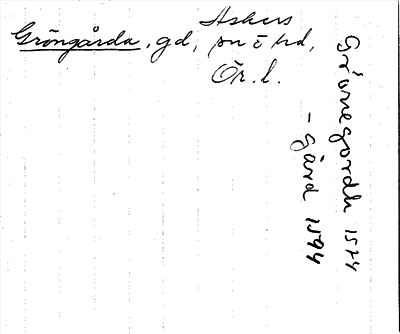 Askers
Gröngårda, gd, sn o hd,
Ör. l.
Grönegordh 1574
- gård 1594